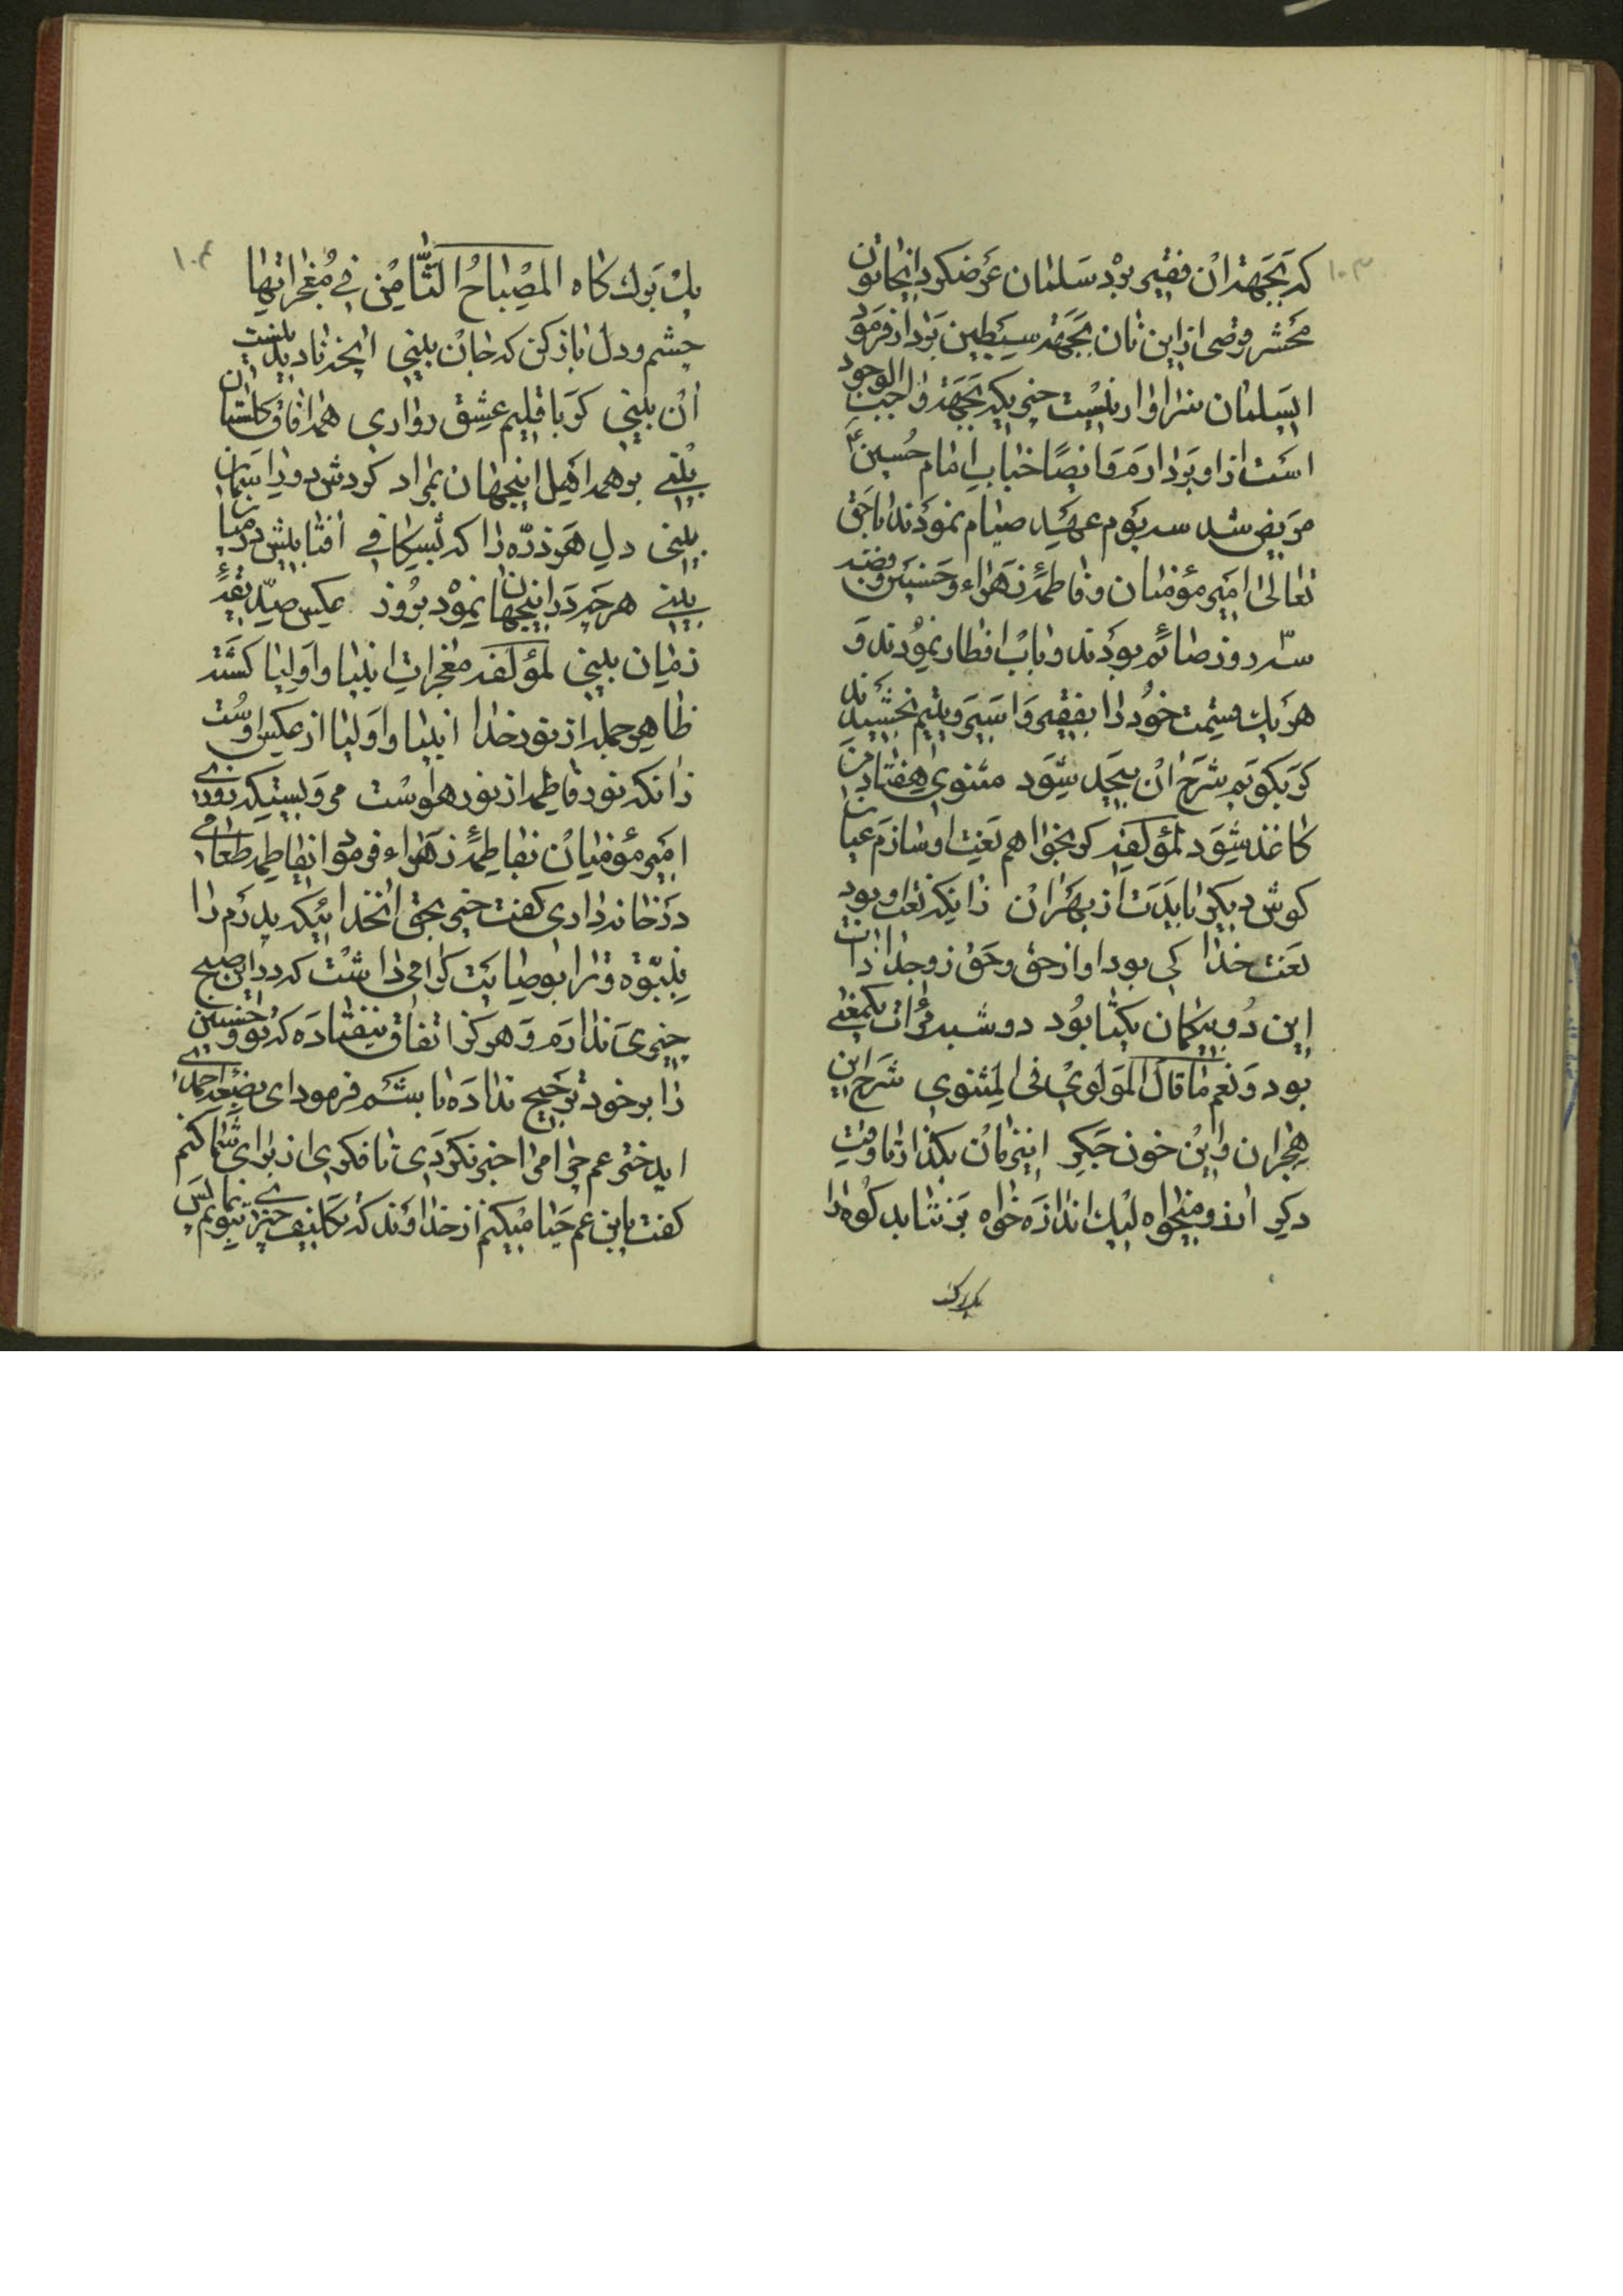 ۱۰۳
که بجهة ان فقیر برد سلمان عرضکرد ایخاتون
محشر قرصی ازین نان بجهة سبطین بردار فرمود
ایسلمان سزاوار نیست چیزیکه بجهة واجب الوجود
است ازاو بردارم و ایضا جناب امام حسین ع
مریض شد سه یوم عهد صیام نمودند با حق
تعالی امیر مؤمنان و فاطمهٔ زهراء و حسنین و فضه
سه روز صائم بودند و باب افطار نمودند و
هر یك قسمت خود را بفقیر و اسیر و یتیم بخشیدند
گر بگویم شرح ان بیحد شود مثنوی هفتاد من
کاغذ شود لمؤلفه گر بخواهم نعت او سازم عیان
گوش دیگر بایدت از بهر ان زانکه نعت او بود
نعت خدا کی بود او از حق و حق زو جدا ذات
این دو بیگمان یکتا بود دو شبه مرات یکمعنی
بود و نعم ما قال المولوی فی المثنوی شرح این
هجران و این خون جگر اینزمان بگذار تا وقت
دگر ارزو میخواه لیك اندازه خواه بر نتابد کوه را
یك برك
۱۰۴
یك برك کاه المصباح الثامن فی معجزاتها
چشم و دل باز کن که جان بینی انچه نادیدنیست
ان بینی گر باقلیم عشق رو اری همه افاق گلستان
بینی بر همه اهل اینجهان بمراد گردش دور اسمان
بینی دل هر ذره را که بشکافی افتابیش در میان
بینی هر چه در اینجهان نمود بروز عکس صدیقهٔ
زمان بینی لمؤلفه معجزات انبیا و اولیا گشته
ظاهر جمله از نور خدا انبیا و اولیا از عکس اوست
زانکه نور فاطمه از نور هوست مرویستکه روزی
امیر مؤمنان بفاطمهٔ زهراء فرمود ایفاطمه طعامی
در خانه داری گفت خیر بحق انخدائیکه پدرم را
بنبوة و ترا بوصایت گرامی داشت که در این صبح
چیزی ندارم و هرگز اتفاق نیفتاده که تو و حسنین
را بر خود ترجیح نداده باشم فرمود ای بضعهٔ احمد
ایدختر عم چرا مرا خبر نکردی تا فکری از برای شما کنم
گفت یابن عم حیا میکنم از خداوند که تکلیف چیزی نمایم پس